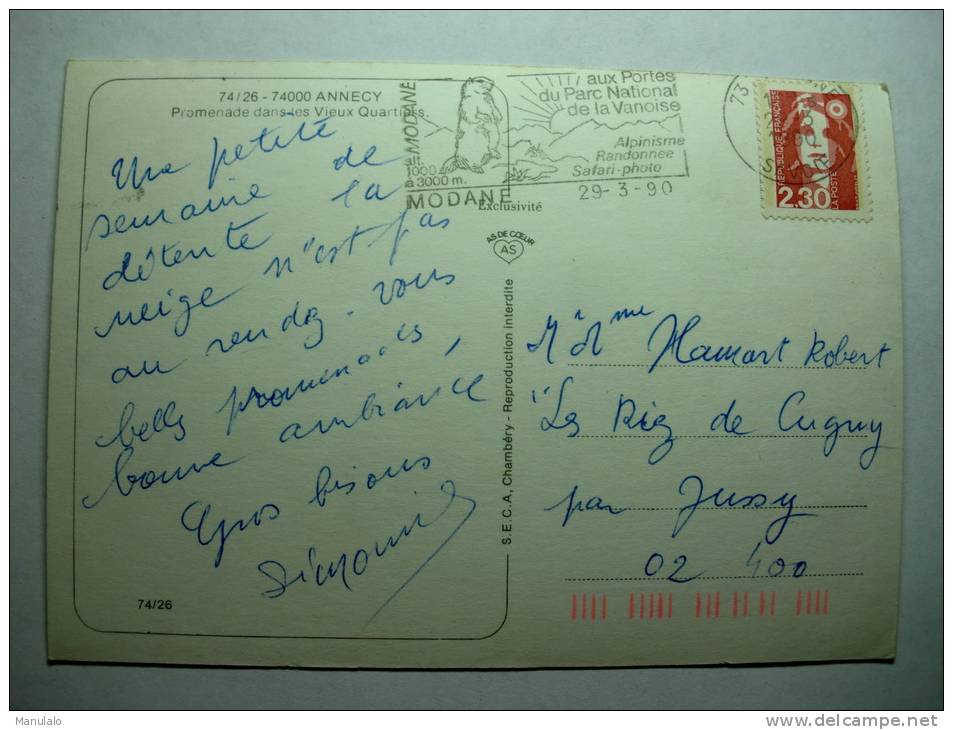 74/26 - 74000 ANNECY
Promenade dans les Vieux Quartiers.
MODANE
alt.
1000
à 3000 m.
MODANE
aux Portes
du Parc National
de la Vanoise
Alpinisme
Randonnée
Safari-photo
29-3-90
73
RÉPUBLIQUE FRANÇAISE
2,30
LA POSTE
Une petite
semaine de
détente la
neige n'est pas
au rendez-vous
belles promenades,
bonne ambiance
Gros bisous
74/26
Exclusivité
AS DE CŒUR
AS
S.E.C.A. Chambéry - Reproduction interdite
Mr Mme Hamart Robert
Les Riez de Cugny
par Jussy
02 400
Manulalo
www.delcampe.net